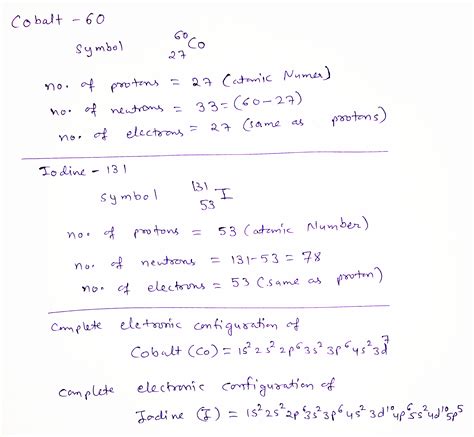 Cobalt - 60
Symbol ⁶⁰₂₇Co
no. of protons = 27 (atomic Numer)
no. of neutrons = 33 = (60-27)
no. of electrons = 27 (same as protons)
Iodine - 131
symbol ¹³¹₅₃I
no. of protons = 53 (atomic Number)
no. of neutrons = 131-53 = 78
no. of electrons = 53 (same as proton)
Complete eletronic configuration of
Cobalt (Co) = 1s² 2s² 2p⁶ 3s² 3p⁶ 4s² 3d⁷
Complete electronic configuration of
Iodine (I) = 1s² 2s² 2p⁶ 3s² 3p⁶ 4s² 3d¹⁰ 4p⁶ 5s² 4d¹⁰ 5p⁵